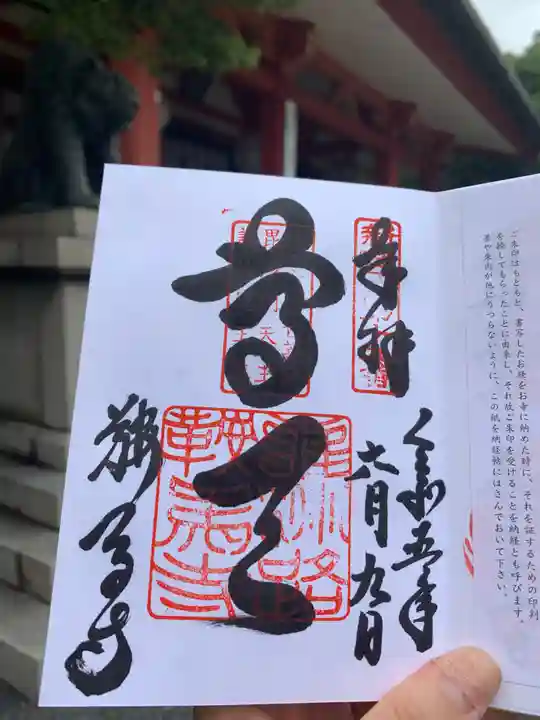 ご朱印はもともと、書写したお経をお寺に納めた時に、それを証するための印判
を捺してもらったことに由来し、それ故ご朱印を受けることを納経とも呼びます。
墨や朱肉が他にうつらないように、この紙を納経帖にはさんでおいて下さい。
奉拝
令和五年
六月九日
尊天
鞍馬寺
鞍馬寺